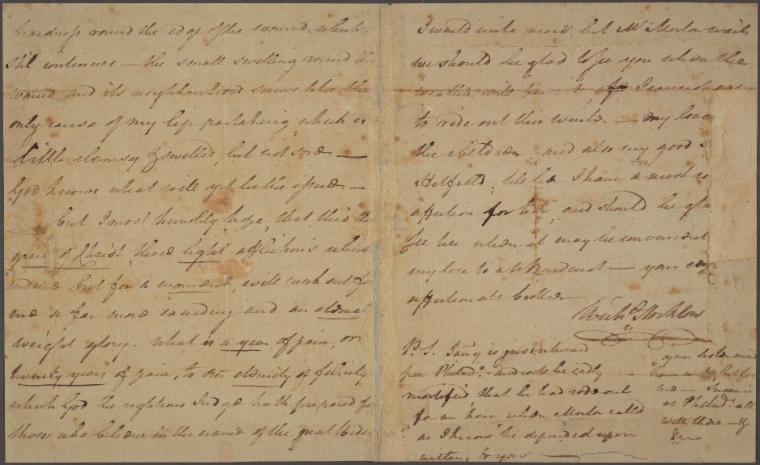 hardness round the edge of the wound which
still continues — the small swelling round the
wound and its neighbourhood seems to be the
only cause of my lip partaking which is
little clumsy & swelled, but not sore —
God knows what will yet be the issue —
but I most humbly hope, that thro' the
grace of Christ, these light afflictions which
endure but for a moment, will work out for
me a far more exceeding and an eternal
weight glory. What is a year of pain, or
twenty years of pain, to an eternity of felicity
which God the righteous Judge hath prepared for
those who believe in the name of the great
I would write more, but Mr Morton waits
we should be glad to see you when the
weather will permit, for I cannot
to ride out this winter — my love
the children and also my good
tell her I have a most
affection for her, and should be glad
see her when it may be convenient
my love to — your
affectionate brother
Richd Stockton
P.S. is just returned
from Philada. and will be sadly
mortified that he had rode out
for an hour when Morton called
as I know he depended upon
writing to you —
your
as Philada. all
well there —